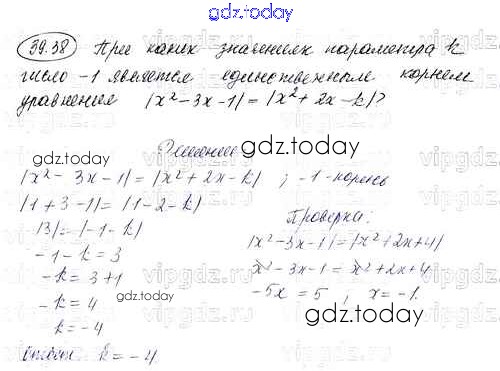 gdz.today
39.38 При каких значениях параметра k
число -1 является единственным корнем
уравнения |x²-3x-1|=|x²+2x-k|?
Решение
gdz.today
|x²-3x-1|=|x²+2x-k| ; -1-корень
|1+3-1|=|1-2-k|
|3|=|-1-k|
-1-k=3
-k=3+1
-k=4
k=-4
Ответ: k=-4
Проверка:
|x²-3x-1|=|x²+2x+4|
x²-3x-1=x²+2x+4
-5x=5, x=-1.
gdz.today
gdz.today
gdz.today
gdz.today
vipgdz.ru